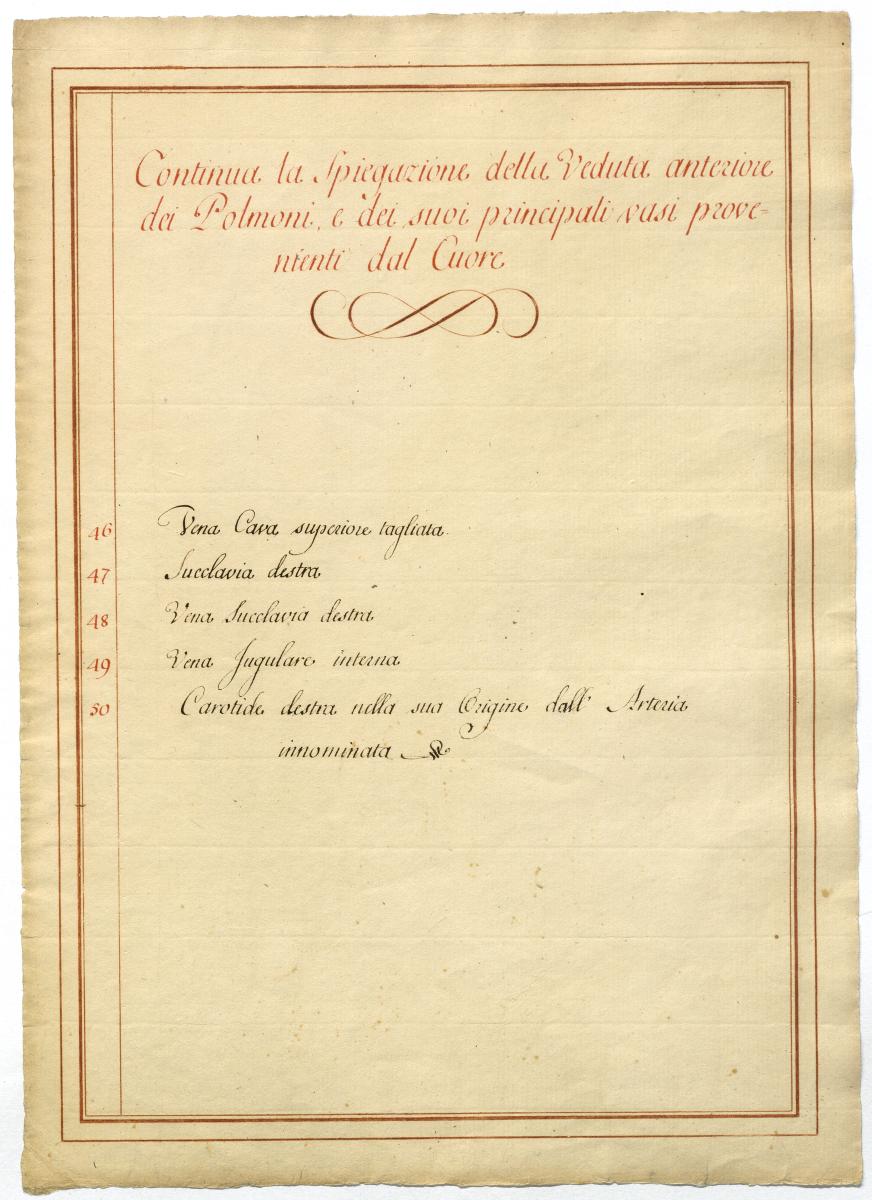 Continua la Spiegazione della Veduta anteriore
dei Polmoni, e dei suoi principali vasi prove=
nienti dal Cuore
46 Vena Cava superiore tagliata.
47 Succlavia destra
48 Vena Succlavia destra
49 Vena Jugulare interna
50 Carotide destra nella sua Origine dall' Arteria
innominata